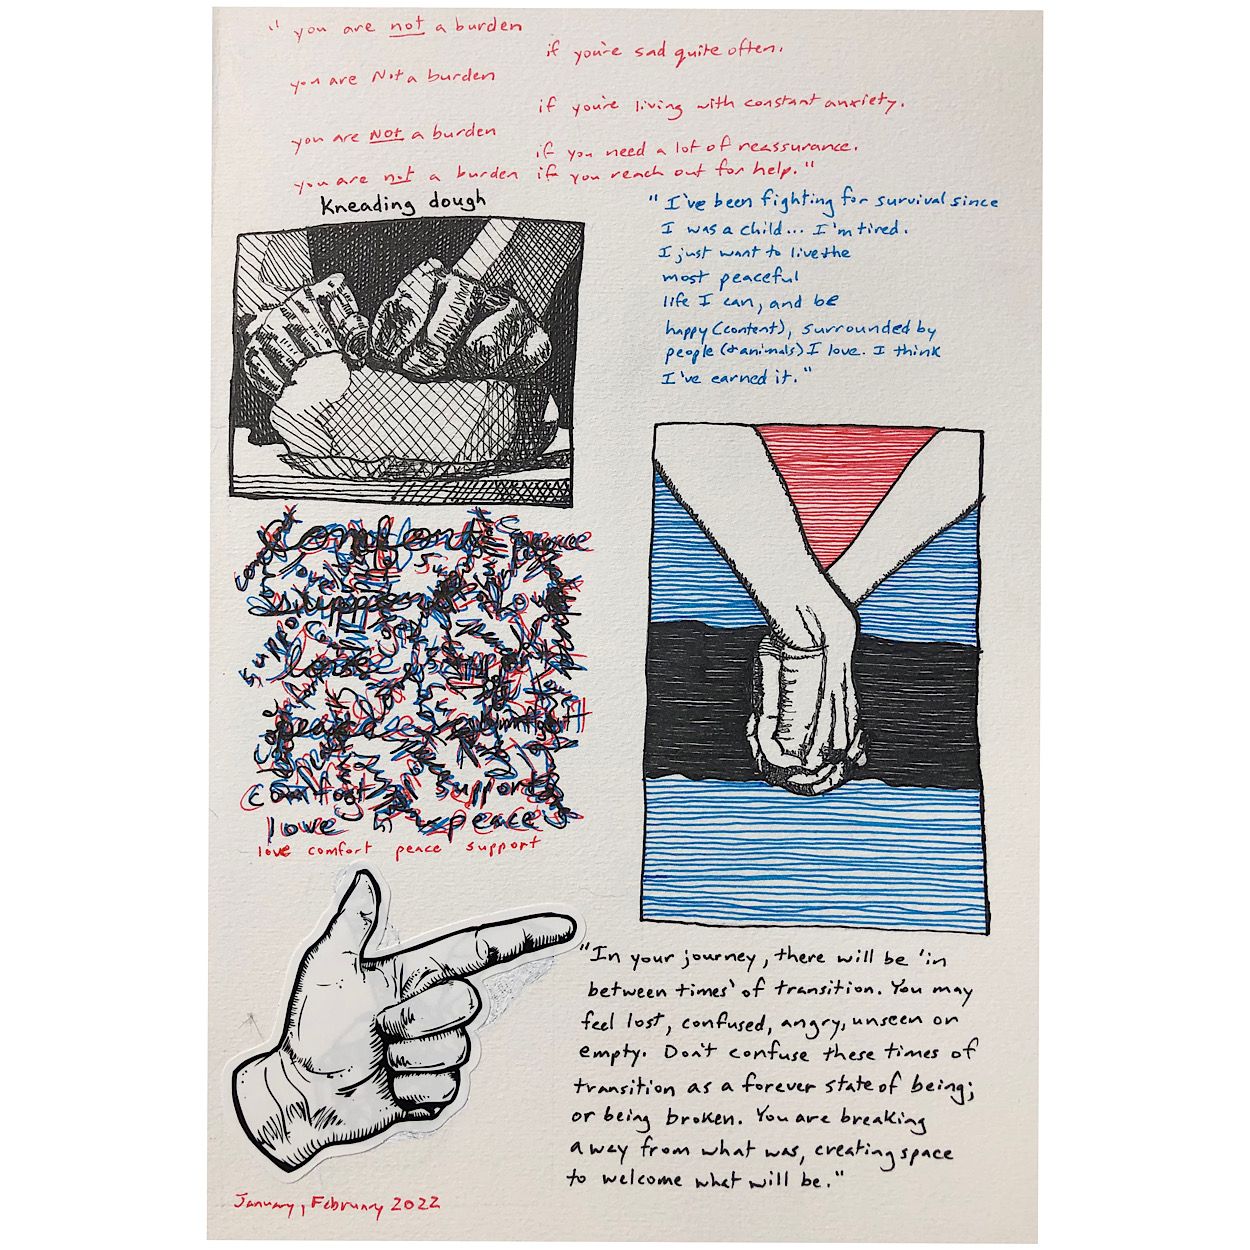 " you are not a burden
if you're sad quite often.
you are Not a burden
if you're living with constant anxiety.
you are NOT a burden
if you need a lot of reassurance.
you are not a burden if you reach out for help."
Kneading dough
"I've been fighting for survival since
I was a child... I'm tired.
I just want to live the
most peaceful
life I can, and be
happy (content), surrounded by
people (& animals) I love. I think
I've earned it."
comfort peace
support love
love support
peace comfort
comfort support
love peace
love comfort peace support
"In your journey, there will be 'in
between times' of transition. You may
feel lost, confused, angry, unseen or
empty. Don't confuse these times of
transition as a forever state of being;
or being broken. You are breaking
away from what was, creating space
to welcome what will be."
January, February 2022